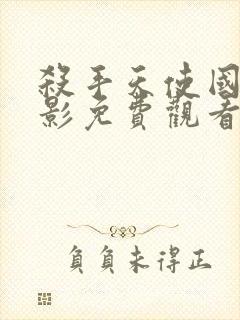 殺手天使國
影免費觀看
負負未得正